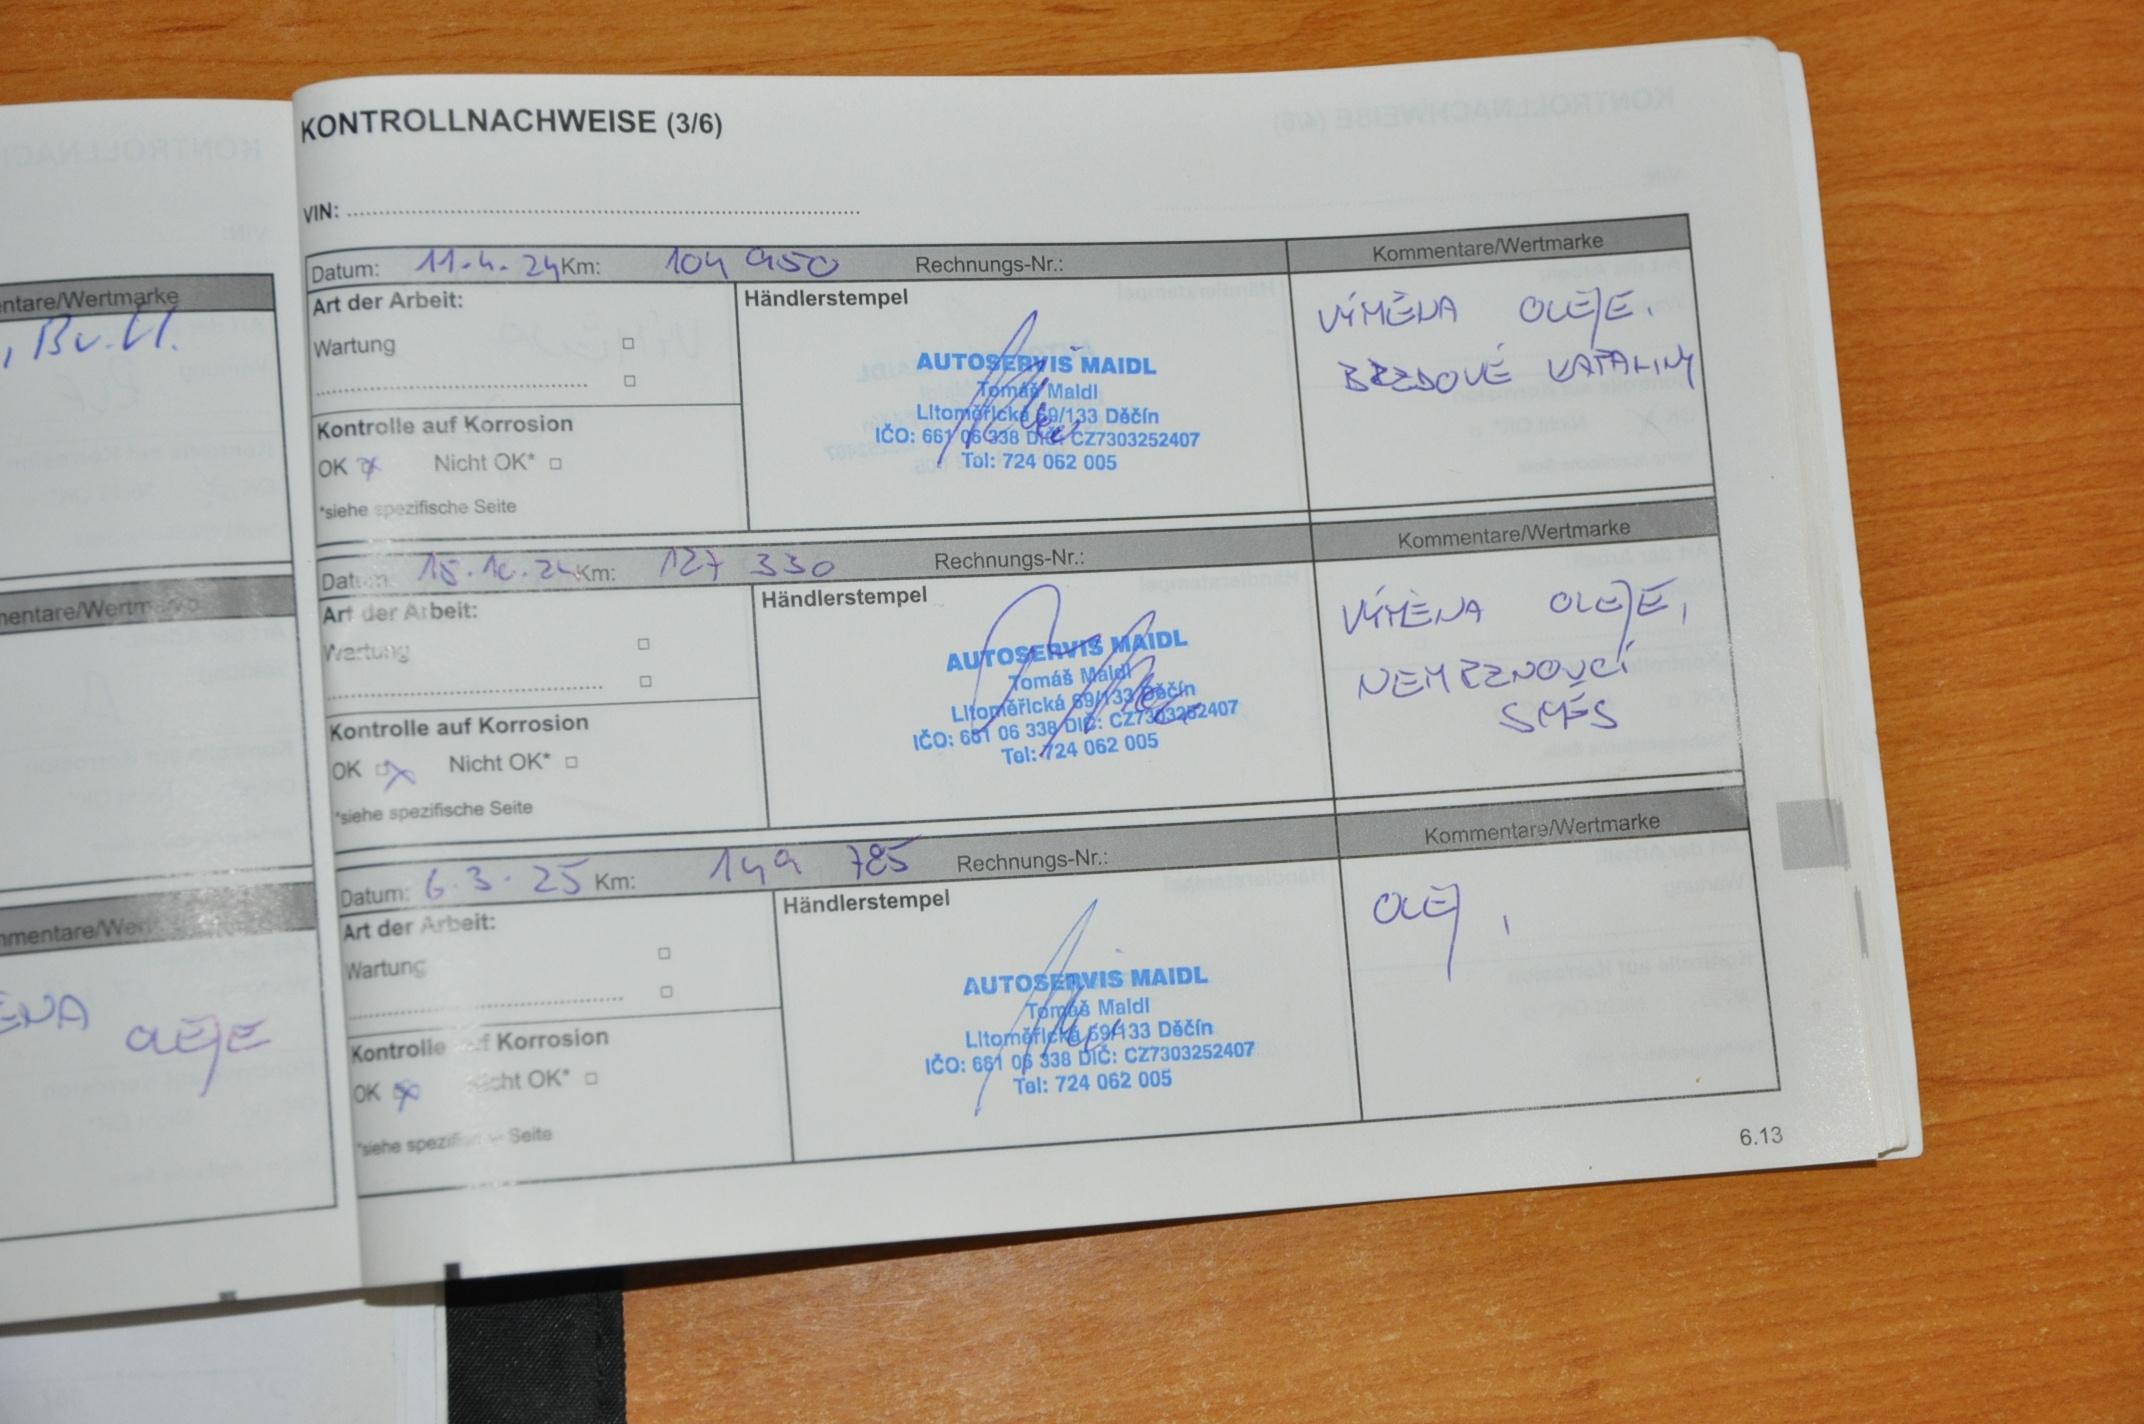 entare/Wertmarke
, Bv.Kl.
mentare/Wertmarke
mmentare/Wert
ĚNA OLEJE
KONTROLLNACHWEISE (3/6)
VIN:
Datum: 11.4.24 Km: 104 950 Rechnungs-Nr.: Kommentare/Wertmarke
Art der Arbeit:
Wartung
Kontrolle auf Korrosion
OK x Nicht OK*
*siehe spezifische Seite
Händlerstempel
AUTOSERVIS MAIDL
Tomáš Maidl
Litoměřická 69/133 Děčín
IČO: 661 06 338 DIČ: CZ7303252407
Tel: 724 062 005
VÝMĚNA OLEJE.
BRZDOVÉ KAPALINY
Datum: 15.10.24 Km: 127 330 Rechnungs-Nr.: Kommentare/Wertmarke
Art der Arbeit:
Wartung
Kontrolle auf Korrosion
OK x Nicht OK*
*siehe spezifische Seite
Händlerstempel
AUTOSERVIS MAIDL
Tomáš Maidl
Litoměřická 69/133 Děčín
IČO: 661 06 338 DIČ: CZ7303252407
Tel: 724 062 005
VÝMĚNA OLEJE,
NEMRZNOUCÍ
SMĚS
Datum: 6.3.25 Km: 149 785 Rechnungs-Nr.: Kommentare/Wertmarke
Art der Arbeit:
Wartung
Kontrolle auf Korrosion
OK x Nicht OK*
*siehe spezifische Seite
Händlerstempel
AUTOSERVIS MAIDL
Tomáš Maidl
Litoměřická 69/133 Děčín
IČO: 661 06 338 DIČ: CZ7303252407
Tel: 724 062 005
OLEJ,
6.13